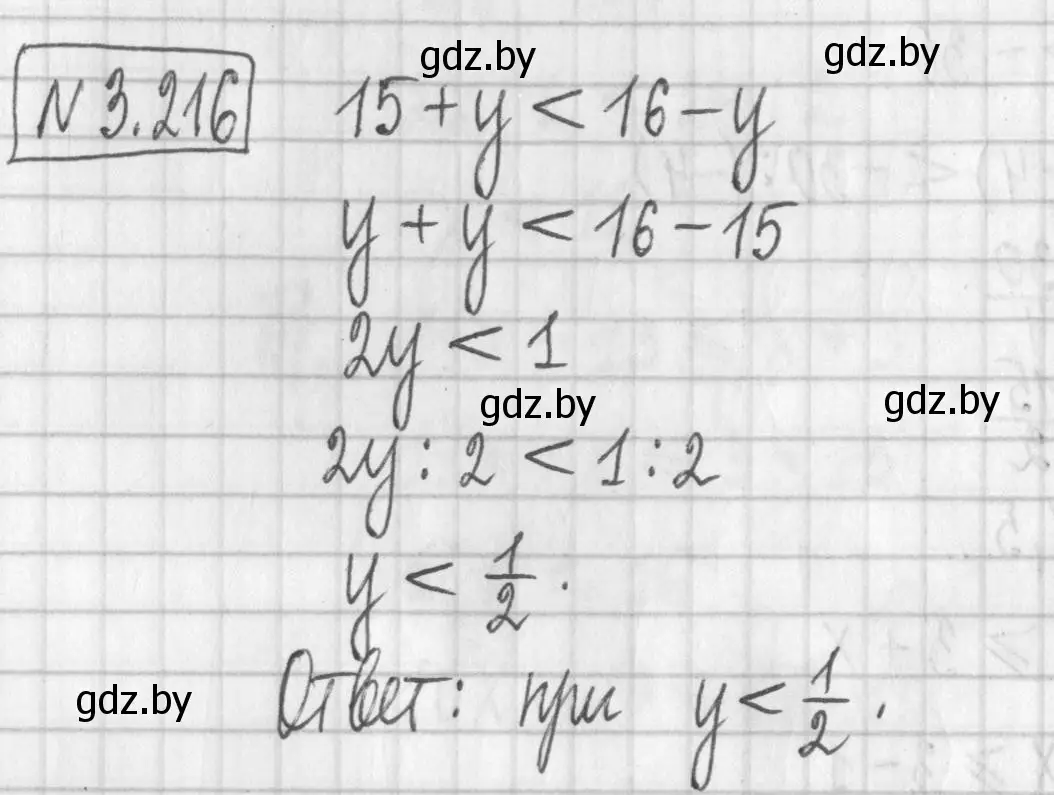 gdz.by
gdz.by
N 3.216
15 + y < 16 - y
y + y < 16 - 15
2y < 1
gdz.by
gdz.by
2y : 2 < 1 : 2
y < 1/2 .
gdz.by
Ответ: при y < 1/2 .